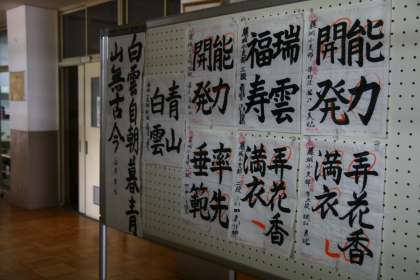 能力
開発
瑞雲
福寿
能力
開発
弄花香
満衣
弄花香
満衣
率先
垂範
青山
白雲
白雲自朝暮青
山無古今